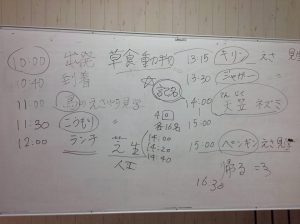 10:00 出発 草食動物
10:40 到着
11:00 鳥のえさやり見学
11:30 こうもり 〃
12:00 ランチ
芝生
人工
4回
各16名
14:00
14:20
14:40
13:15 キリン えさ 見学
13:30 ジャガー 〃
14:00
15:00
15:00 ペンギンえさ見学
帰る =3
16:30